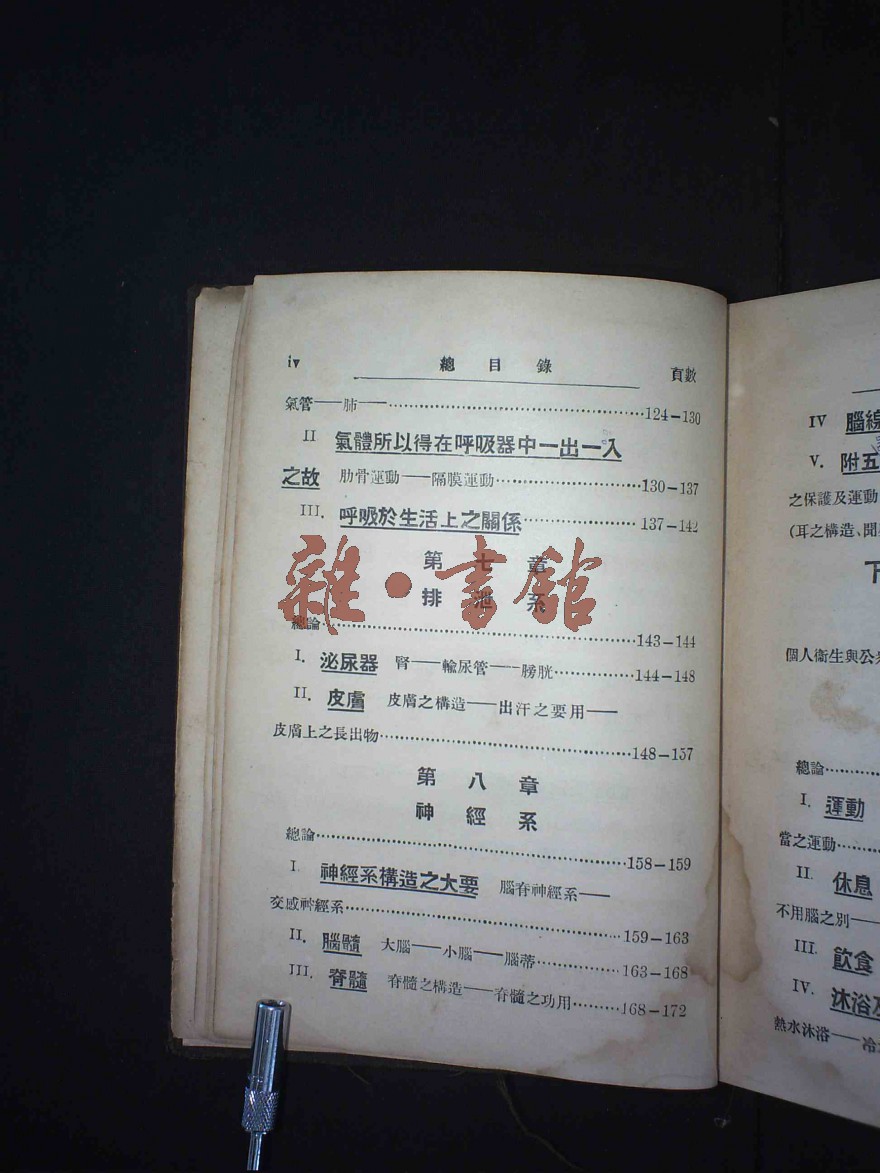 iv 總目錄 頁數
氣管——肺——……124-130
II 氣體所以得在呼吸器中一出一入
之故 肋骨運動——隔膜運動……130-137
III. 呼吸於生活上之關係……137-142
第七章
排泄系
總論……143-144
I. 泌尿器 腎——輸尿管——膀胱……144-148
II. 皮膚 皮膚之構造——出汗之要用——
皮膚上之長出物……148-157
第八章
神經系
總論……158-159
I. 神經系構造之大要 腦脊神經系——
交感神經系……159-163
II. 腦髓 大腦——小腦——腦蒂……163-168
III. 脊髓 脊髓之構造——脊髓之功用……168-172
雜·書館
IV 腦
V. 附五
之保護及運動
(耳之構造、聞
下
個人衞生與公
總論……
I. 運動
當之運動……
II. 休息
不用腦之別——
III. 飲食
IV. 沐浴及
熱水沐浴——冷